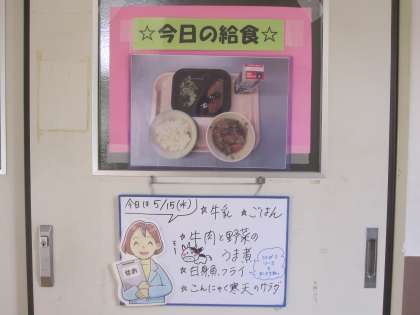 ☆今日の給食☆
今日は5/15(水)
☆牛乳 ☆ごはん
☆牛肉と野菜の
うま煮
モー
☆白身魚フライ
☆こんにゃく寒天のサラダ